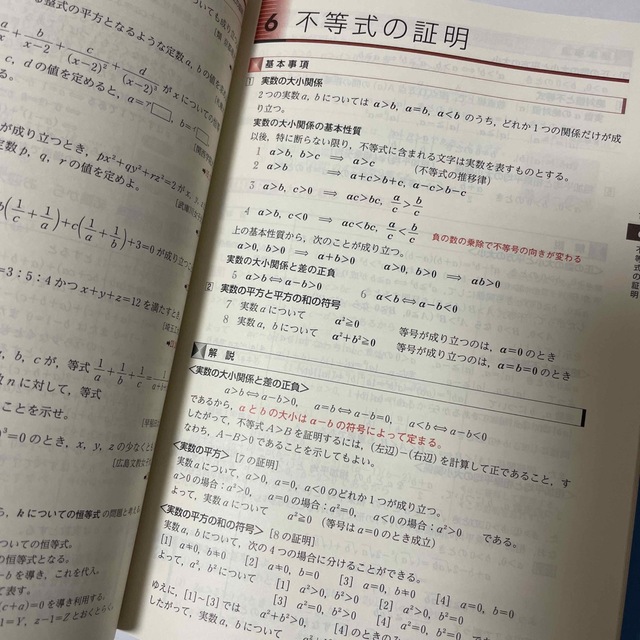 る整式の平方となるような定数 a, b の値を
a/x + b/x-2 + c/(x-2)² + d/(x-2)³ が x についての恒等
c, d の値を定めると, a=
b=
が成り立つとき, px²+qy²+rz²=2 が x, y,
定数 p, q, r の値を定めよ。
b(1/c+1/a)+c(1/a+1/b)+3=0 が成り立つ
=3:5:4 かつ x+y+z=12 を満たすとき
b, c が, 等式 1/a+1/b+1/c=
数 n に対して, 等式
ことを示せ。
³=0 のとき, x, y, z の少なくとも
[広島文教女子
ら, k についての恒等式の問題と考え
ついての恒等式。
恒等式となる。
-b を導き, これを代入。
て表す。
(c+a)=0 を導き利用する。
-1=Y, z-1=Z とおくとらく。
6 不等式の証明
基本事項
1 実数の大小関係
2つの実数 a, b については a>b, a=b, a<b のうち, どれか1つの関係だけが成
り立つ。
実数の大小関係の基本性質
以後, 特に断らない限り, 不等式に含まれる文字は実数を表すものとする。
1 a>b, b>c ⟹ a>c (不等式の推移律)
2 a>b ⟹ a+c>b+c, a-c>b-c
3 a>b, c>0 ⟹ ac>bc, a/c>b/c
4 a>b, c<0 ⟹ ac<bc, a/c<b/c 負の数の乗除で不等号の向きが変わる
上の基本性質から, 次のことが成り立つ。
a>0, b>0 ⟹ a+b>0 a>0, b>0 ⟹ ab>0
実数の大小関係と差の正負
5 a>b⟺a-b>0 6 a<b⟺a-b<0
2 実数の平方と平方の和の符号
7 実数 a について a²≧0 等号が成り立つのは, a=0 のとき
8 実数 a, b について a²+b²≧0 等号が成り立つのは, a=b=0 のとき
解説
<実数の大小関係と差の正負>
a>b⟺a-b>0, a=b⟺a-b=0, a<b⟺a-b<0
であるから, a と b の大小は a-b の符号によって定まる。
したがって, 不等式 A>B を証明するには, (左辺)-(右辺) を計算して正であること, す
なわち, A-B>0 であることを示してもよい。
<実数の平方> [7の証明]
実数 a について, a>0, a=0, a<0 のどれか1つが成り立つ。
a>0 の場合: a²>0, a=0 の場合: a²=0, a<0 の場合: a²>0 である。
よって, 実数 a について a²≧0 (等号は a=0 のとき成立)
<実数の平方の和の符号> [8の証明]
実数 a, b について, 次の4つの場合に分けることができる。
[1] a≠0, b≠0 [2] a≠0, b=0 [3] a=0, b≠0 [4] a=0, b=0
よって, a², b² について
[1] a²>0, b²>0 [2] a²>0, b²=0
[3] a²=0, b²>0 [4] a²=0, b²=0
ゆえに, [1]~[3] では a²+b²>0, [4] では a²+b²=0
したがって, 実数 a, b について
不等式の証明